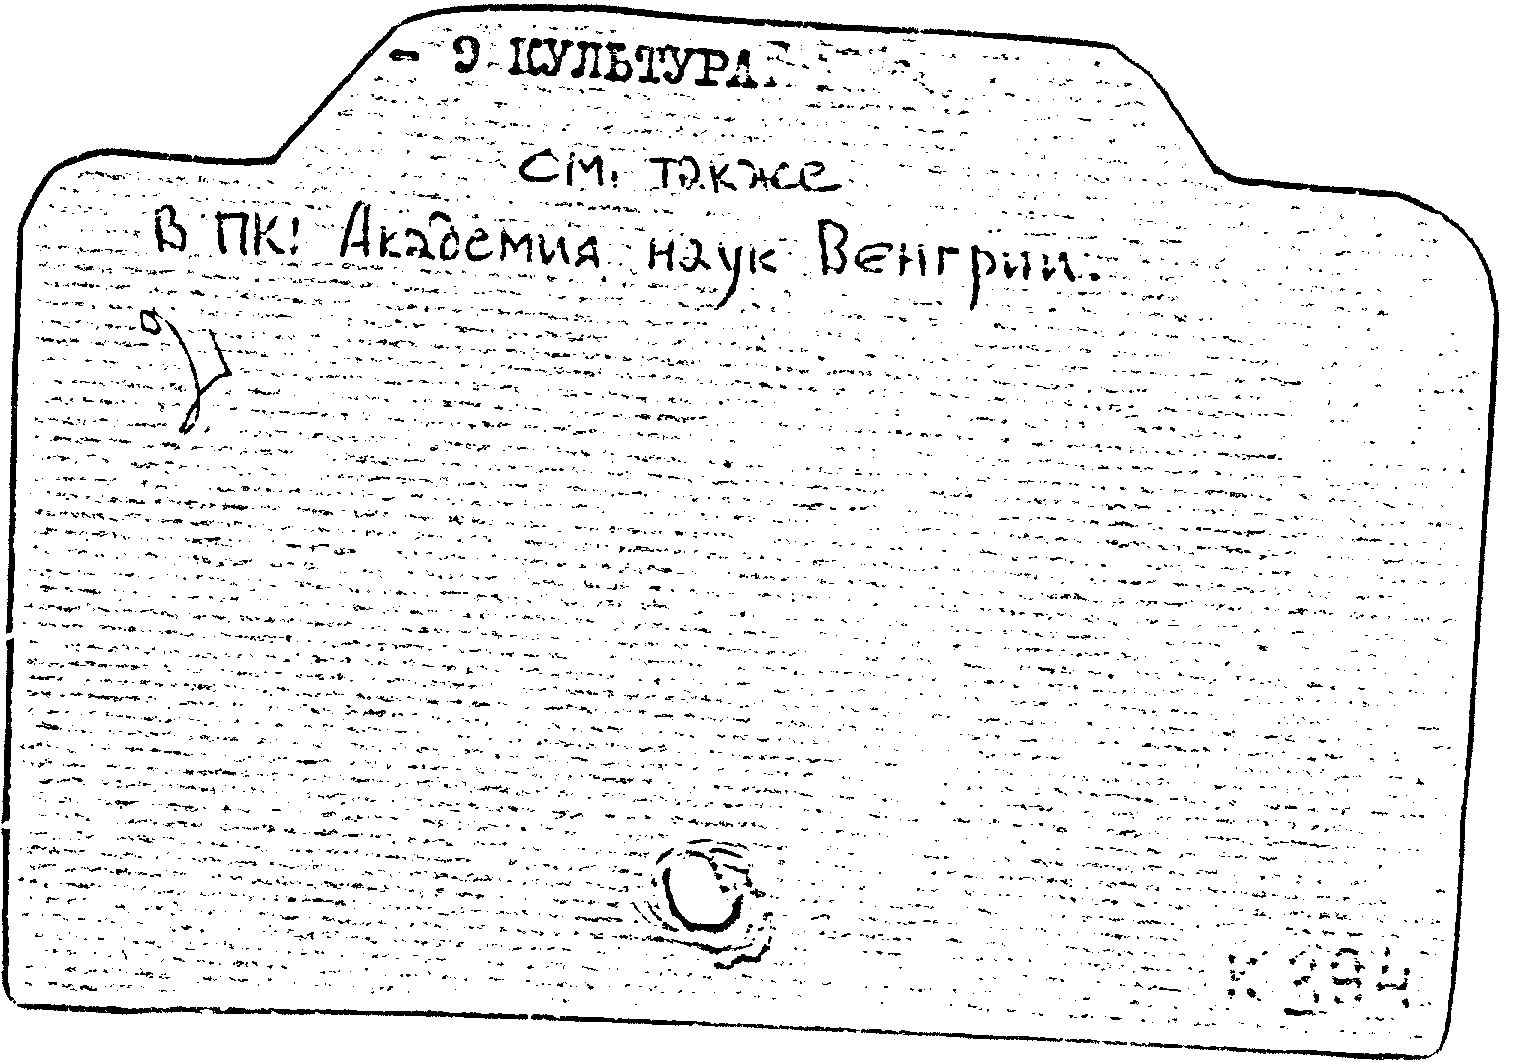 - 9 КУЛЬТУРА.
см. также
В ПК: Академия наук Венгрии.